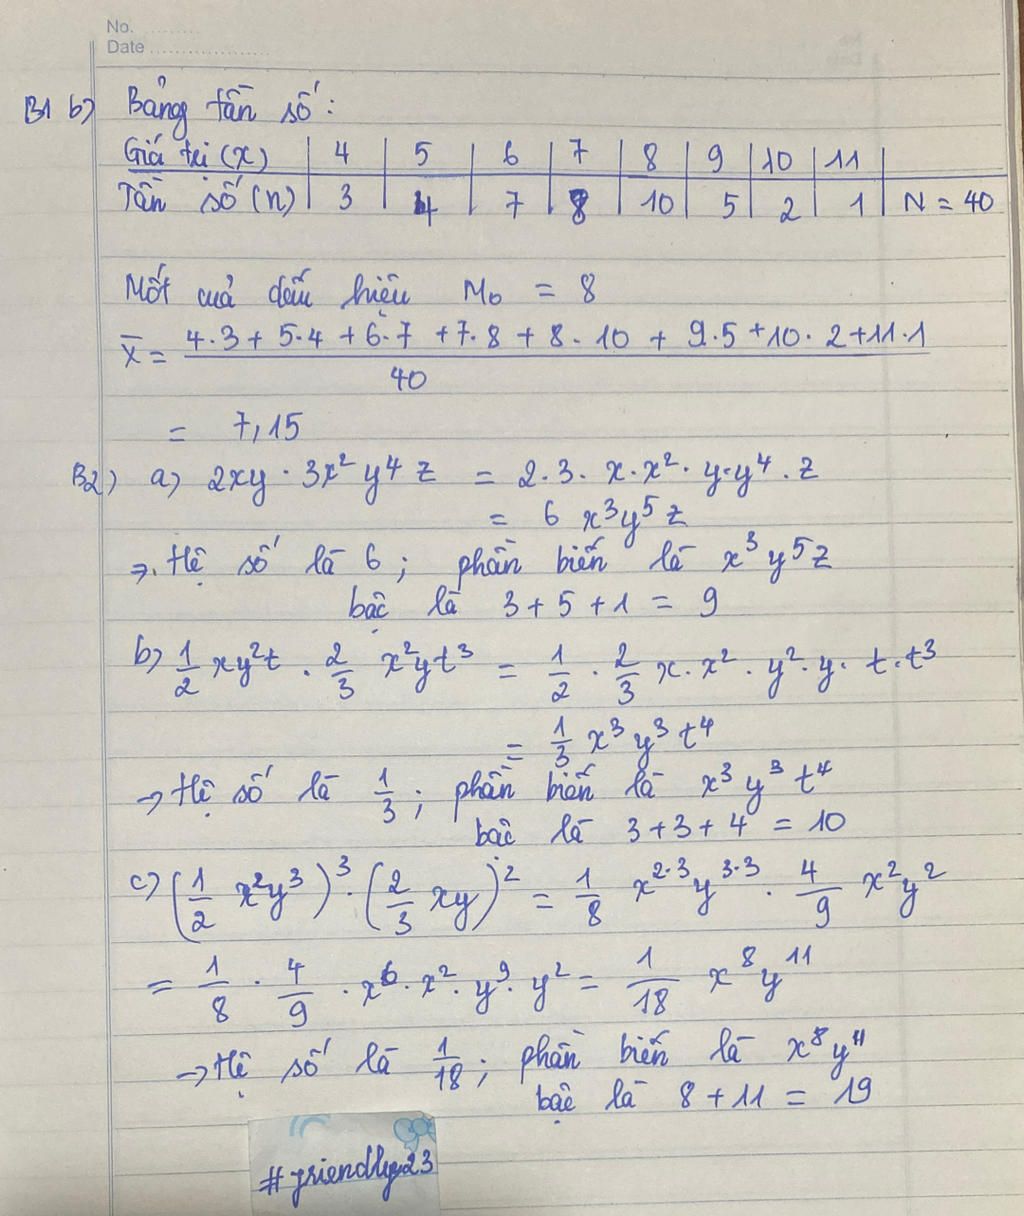 No. ..........
Date ......................
B1 b) Bảng tần số:
Giá trị (x) | 4 | 5 | 6 | 7 | 8 | 9 | 10 | 11 |
Tần số (n) | 3 | 4 | 7 | 8 | 10 | 5 | 2 | 1 | N = 40
Mốt của dấu hiệu M₀ = 8
X̄ = (4·3 + 5·4 + 6·7 + 7·8 + 8·10 + 9·5 + 10·2 + 11·1) / 40
= 7,15
B2) a) 2xy · 3x² y⁴ z = 2·3· x·x² · y·y⁴ · z
= 6 x³y⁵z
→. Hệ số là 6 ; phần biến là x³y⁵z
bậc là 3 + 5 + 1 = 9
b) 1/2 xy²t · 2/3 x²yt³ = 1/2 · 2/3 x·x² · y²·y· t·t³
= 1/3 x³y³t⁴
→ Hệ số là 1/3 ; phần biến là x³y³t⁴
bậc là 3+3+4 = 10
c) (1/2 x²y³)³·(2/3 xy)² = 1/8 x²·³y³·³ · 4/9 x²y²
= 1/8 · 4/9 · x⁶·x²·y⁹·y² = 1/18 x⁸y¹¹
→ Hệ số là 1/18 ; phần biến là x⁸y¹¹
bậc là 8 + 11 = 19
#friendly23